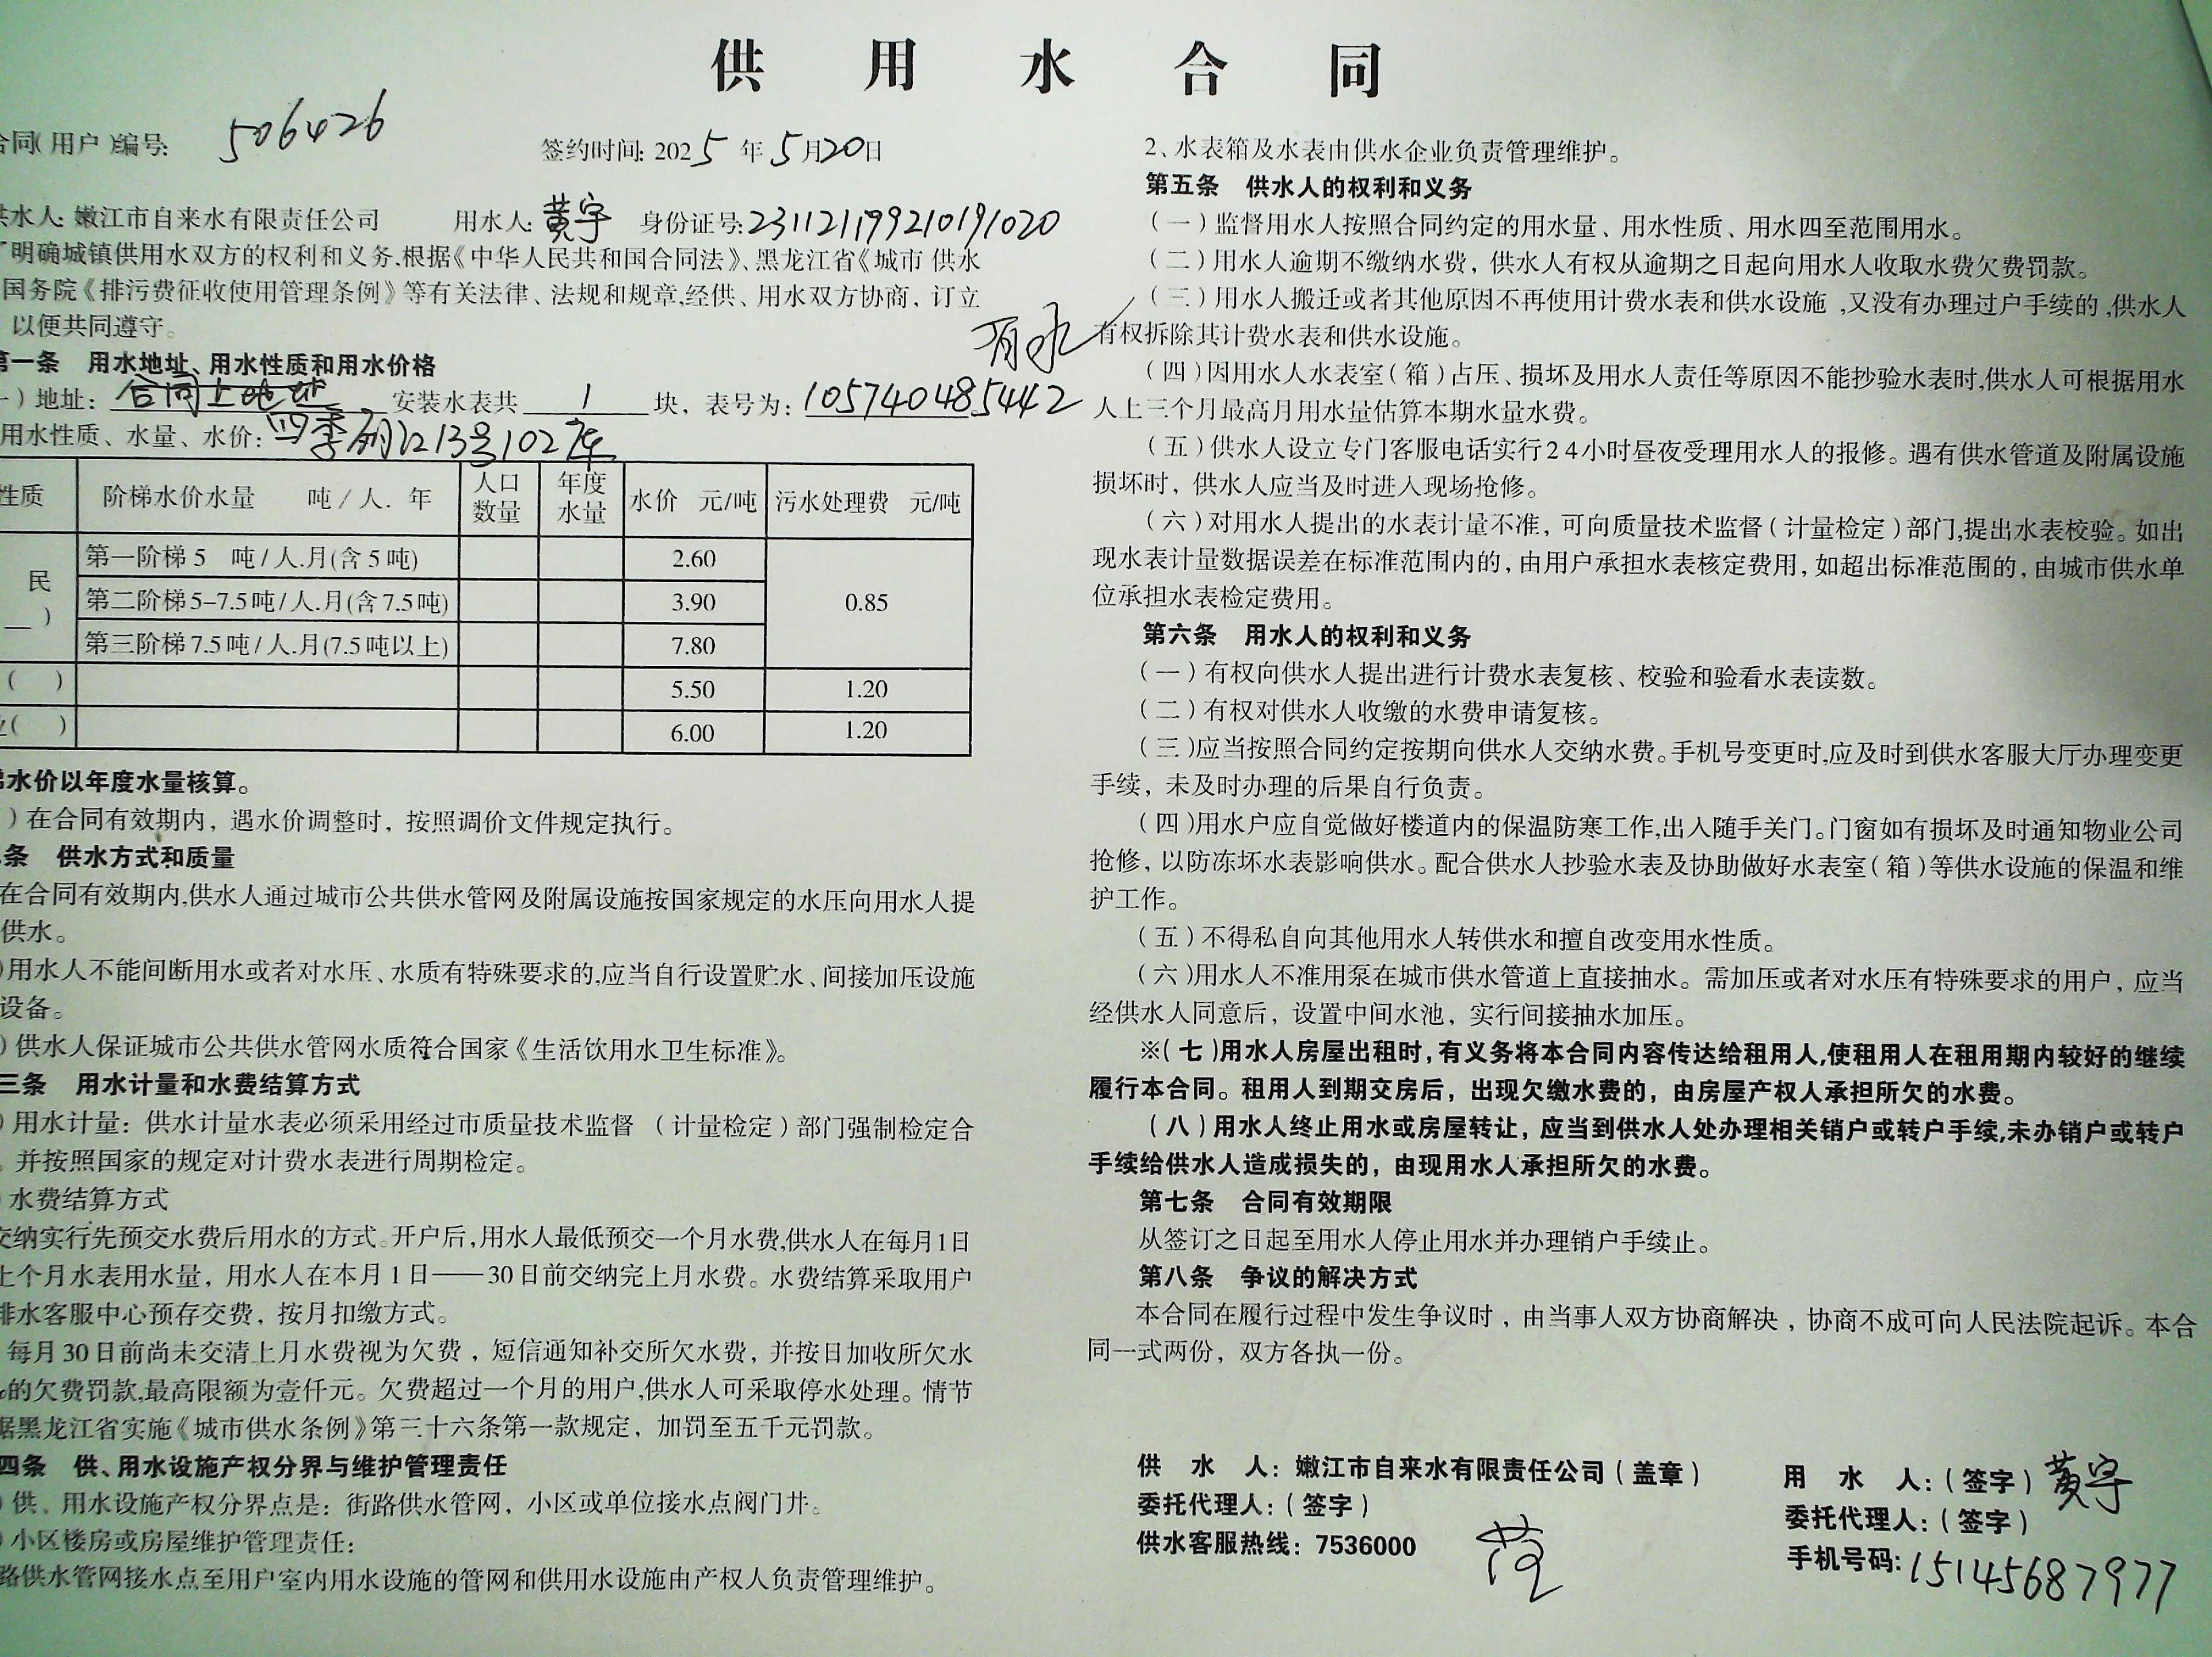 供用水合同
合同(用户)编号: 506426
签约时间: 2025年5月20日
供水人: 嫩江市自来水有限责任公司 用水人: 黄宇 身份证号: 231121199210191020
了明确城镇供用水双方的权利和义务.根据《中华人民共和国合同法》、黑龙江省《城市 供水
国务院《排污费征收使用管理条例》等有关法律、法规和规章,经供、用水双方协商, 订立
以便共同遵守。
第一条 用水地址、用水性质和用水价格
一)地址: 合同上地址 安装水表共 1 块, 表号为: 105740485442
有水
用水性质、水量、水价: 四季丽江13号102库
性质 阶梯水价水量 吨/人. 年 人口数量 年度水量 水价 元/吨 污水处理费 元/吨
民 第一阶梯 5 吨/人.月(含 5 吨) 2.60
第二阶梯 5-7.5 吨/人.月(含 7.5 吨) 3.90 0.85
第三阶梯 7.5 吨/人.月(7.5 吨以上) 7.80
( ) 5.50 1.20
业( ) 6.00 1.20
梯水价以年度水量核算。
)在合同有效期内, 遇水价调整时, 按照调价文件规定执行。
条 供水方式和质量
在合同有效期内,供水人通过城市公共供水管网及附属设施按国家规定的水压向用水人提
供水。
)用水人不能间断用水或者对水压、水质有特殊要求的,应当自行设置贮水、间接加压设施
设备。
)供水人保证城市公共供水管网水质符合国家《生活饮用水卫生标准》。
三条 用水计量和水费结算方式
)用水计量: 供水计量水表必须采用经过市质量技术监督 (计量检定)部门强制检定合
。并按照国家的规定对计费水表进行周期检定。
)水费结算方式
交纳实行先预交水费后用水的方式。开户后,用水人最低预交一个月水费,供水人在每月1日
上个月水表用水量, 用水人在本月 1 日——30 日前交纳完上月水费。水费结算采取用户
排水客服中心预存交费, 按月扣缴方式。
每月 30 日前尚未交清上月水费视为欠费 , 短信通知补交所欠水费, 并按日加收所欠水
的欠费罚款,最高限额为壹仟元。欠费超过一个月的用户,供水人可采取停水处理。情节
据黑龙江省实施《城市供水条例》第三十六条第一款规定, 加罚至五千元罚款。
四条 供、用水设施产权分界与维护管理责任
)供、用水设施产权分界点是: 街路供水管网, 小区或单位接水点阀门井。
)小区楼房或房屋维护管理责任:
路供水管网接水点至用户室内用水设施的管网和供用水设施由产权人负责管理维护。
2、水表箱及水表由供水企业负责管理维护。
第五条 供水人的权利和义务
(一)监督用水人按照合同约定的用水量、用水性质、用水四至范围用水。
(二)用水人逾期不缴纳水费, 供水人有权从逾期之日起向用水人收取水费欠费罚款。
(三)用水人搬迁或者其他原因不再使用计费水表和供水设施 ,又没有办理过户手续的 ,供水人
有权拆除其计费水表和供水设施。
(四)因用水人水表室(箱)占压、损坏及用水人责任等原因不能抄验水表时,供水人可根据用水
人上三个月最高月用水量估算本期水量水费。
(五)供水人设立专门客服电话实行24小时昼夜受理用水人的报修。遇有供水管道及附属设施
损坏时, 供水人应当及时进入现场抢修。
(六)对用水人提出的水表计量不准, 可向质量技术监督(计量检定)部门,提出水表校验。如出
现水表计量数据误差在标准范围内的, 由用户承担水表核定费用, 如超出标准范围的, 由城市供水单
位承担水表检定费用。
第六条 用水人的权利和义务
(一)有权向供水人提出进行计费水表复核、校验和验看水表读数。
(二)有权对供水人收缴的水费申请复核。
(三)应当按照合同约定按期向供水人交纳水费。手机号变更时,应及时到供水客服大厅办理变更
手续, 未及时办理的后果自行负责。
(四)用水户应自觉做好楼道内的保温防寒工作,出入随手关门。门窗如有损坏及时通知物业公司
抢修, 以防冻坏水表影响供水。配合供水人抄验水表及协助做好水表室(箱)等供水设施的保温和维
护工作。
(五)不得私自向其他用水人转供水和擅自改变用水性质。
(六)用水人不准用泵在城市供水管道上直接抽水。需加压或者对水压有特殊要求的用户, 应当
经供水人同意后, 设置中间水池, 实行间接抽水加压。
※(七)用水人房屋出租时,有义务将本合同内容传达给租用人,使租用人在租用期内较好的继续
履行本合同。租用人到期交房后, 出现欠缴水费的, 由房屋产权人承担所欠的水费。
(八)用水人终止用水或房屋转让, 应当到供水人处办理相关销户或转户手续,未办销户或转户
手续给供水人造成损失的, 由现用水人承担所欠的水费。
第七条 合同有效期限
从签订之日起至用水人停止用水并办理销户手续止。
第八条 争议的解决方式
本合同在履行过程中发生争议时 , 由当事人双方协商解决 , 协商不成可向人民法院起诉。本合
同一式两份, 双方各执一份。
供 水 人: 嫩江市自来水有限责任公司(盖章)
委托代理人:(签字)
供水客服热线: 7536000
用 水 人:(签字)黄宇
委托代理人:(签字)
手机号码: 15145687977